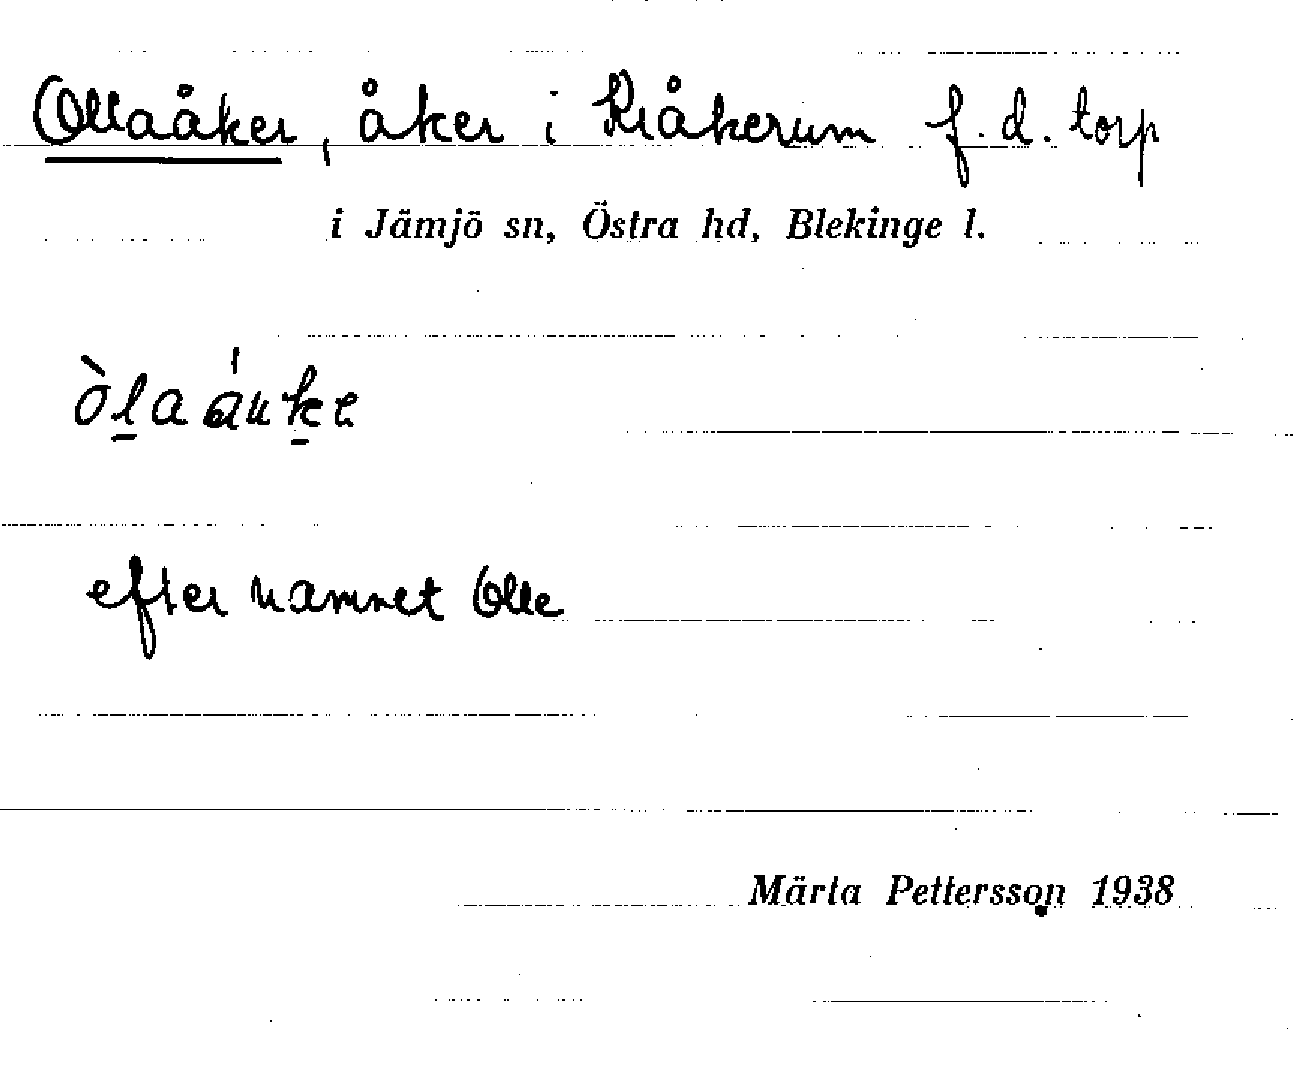 Ollaåker, åker i Kråkerum f.d. torp
i Jämjö sn, Östra hd, Blekinge l.
òl̲aáuk̲e
efter namnet Olle
Märta Pettersson 1938